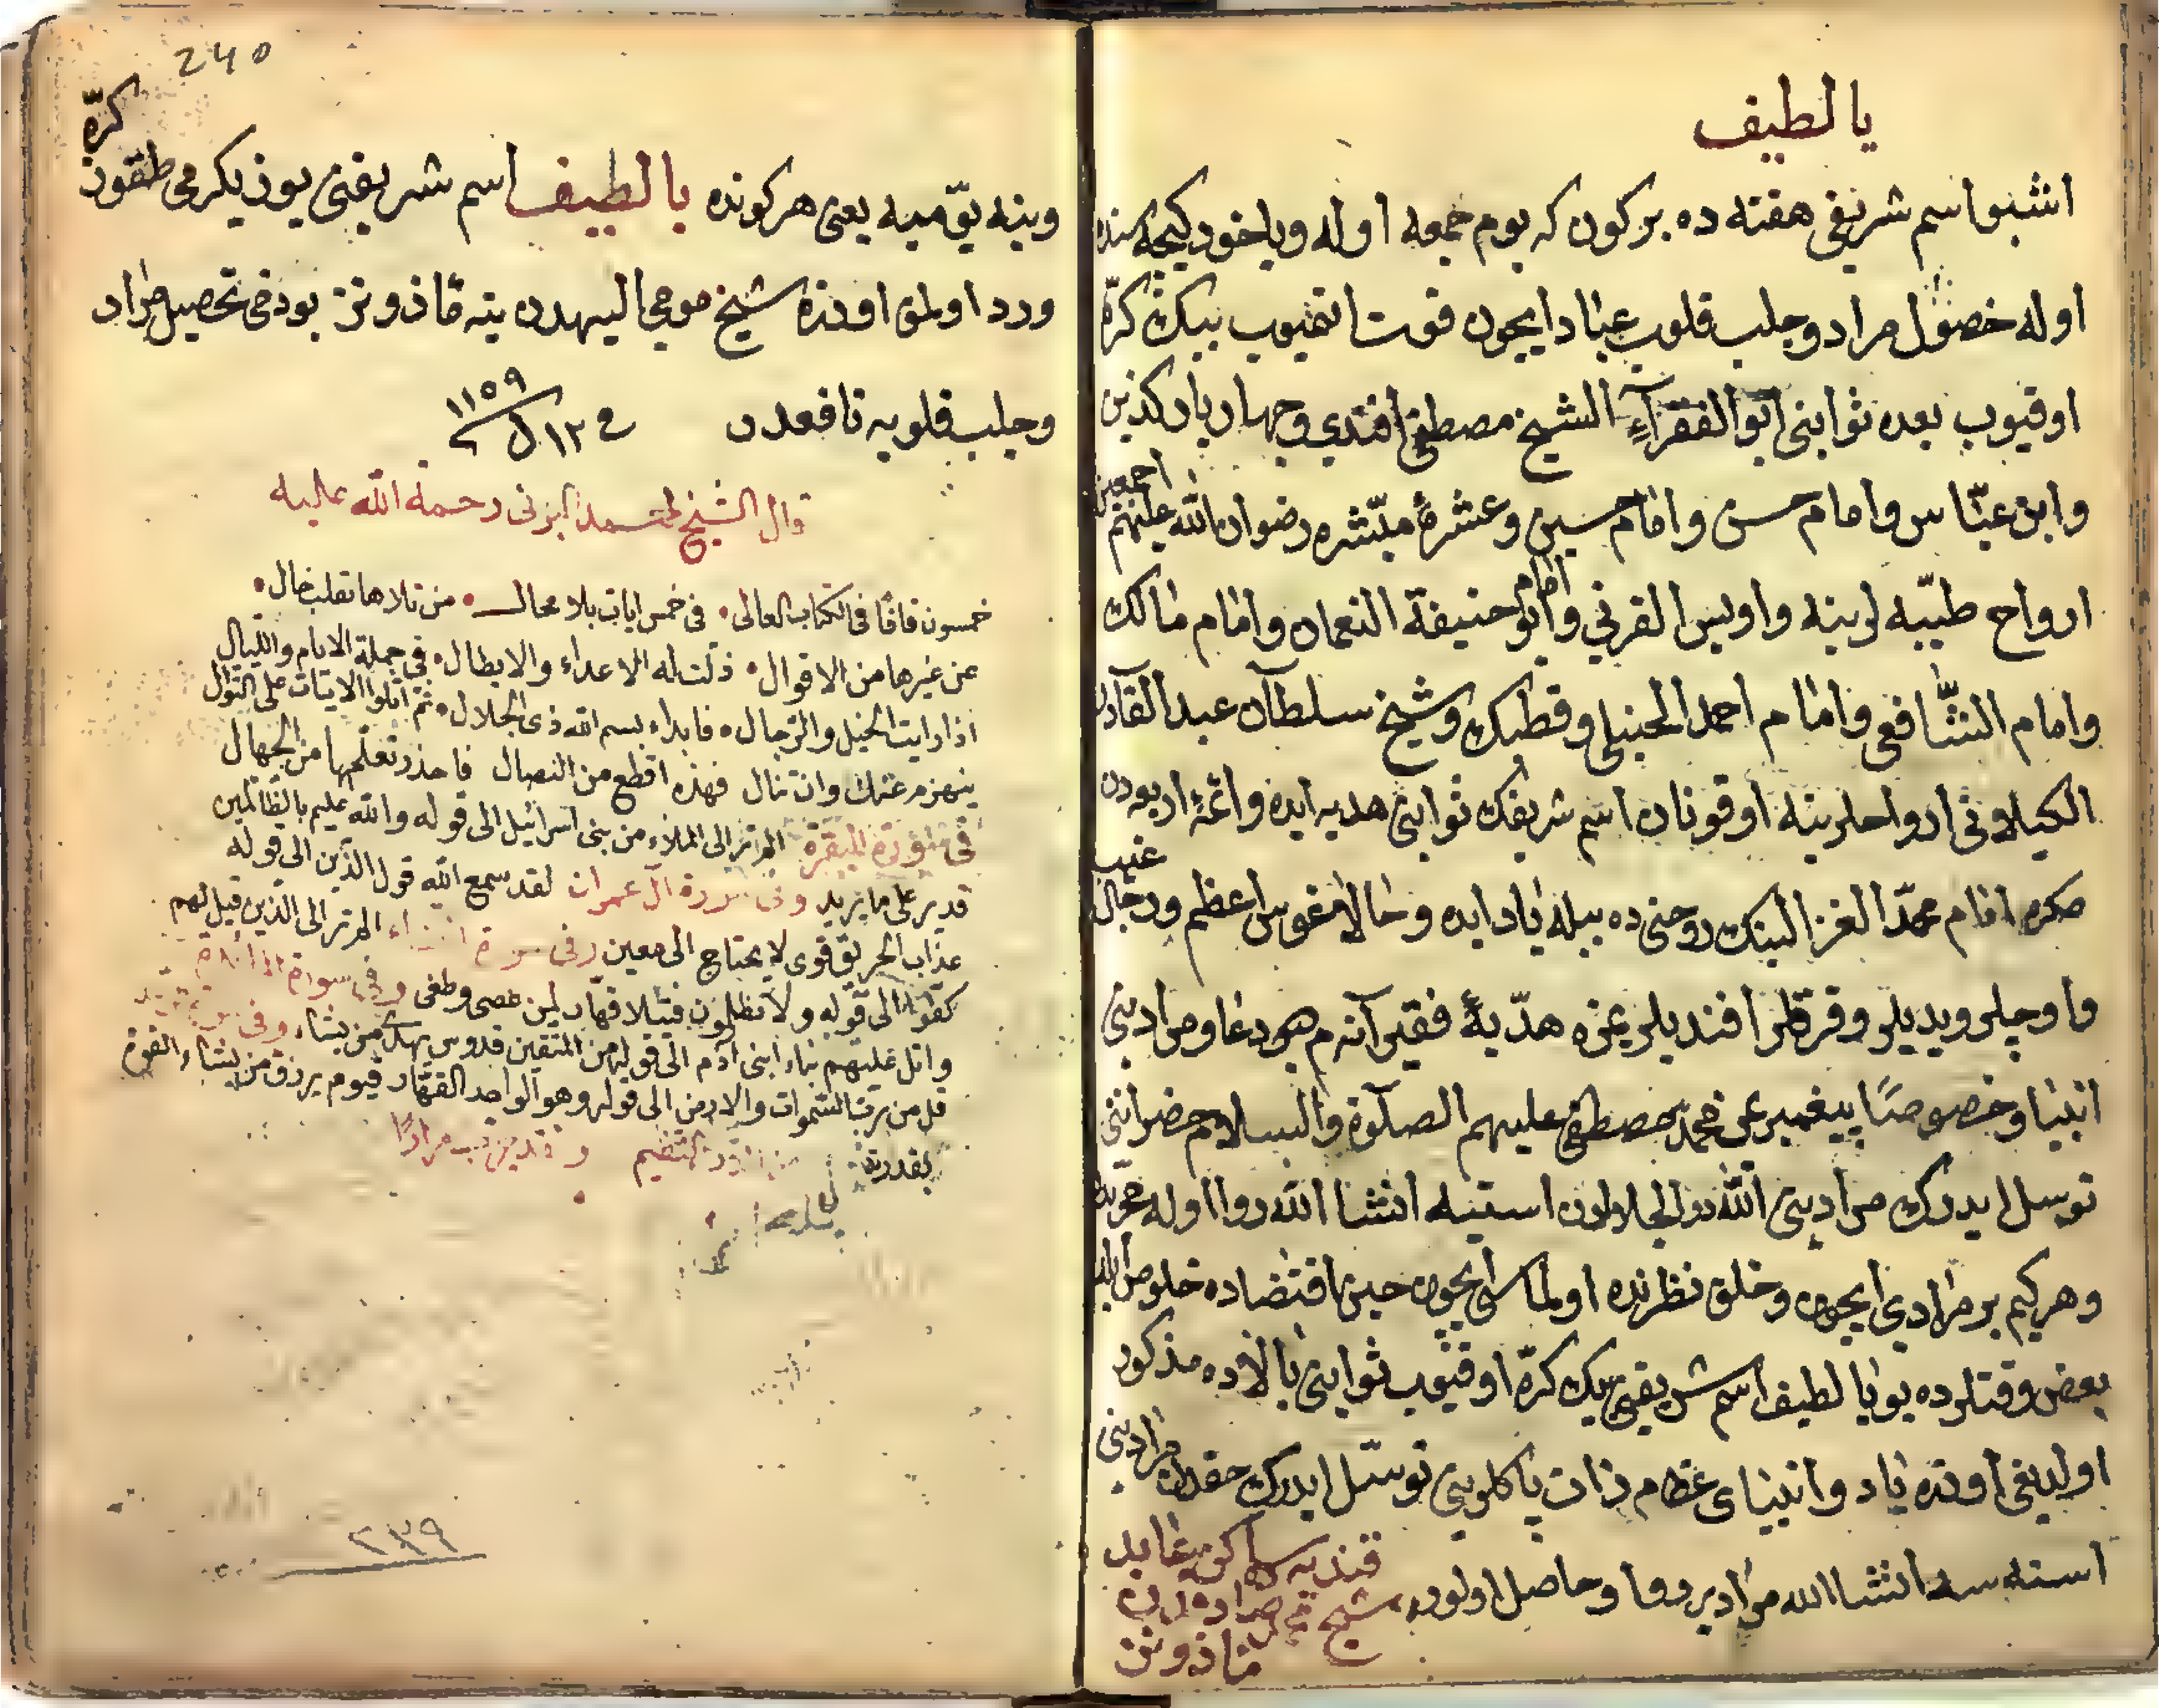 يا لطيف
اشبو اسم شريفى هفته ده بر كون كه يوم جمعه اوله وياخود كيجه سنده
اوله حصول مراد وجلب قلوب عباد ايچون قوت اتميوب بيك كرّه
اوقيوب بعده ثوابنى ابو الفقرآء الشيخ مصطفى افندى وچهار يار كزين
وابن عبّاس وامام حسن وامام حسين وعشرهٔ مبشّره رضوان الله عليهم اجمعين
ارواح طيّبه لرينه واويس القرنى وامام ابو حنيفة النعمان وامام مالك
وامام الشّافعى وامام احمد الحنبلى وقطبك وشيخ سلطان عبد القآدر
الكيلانى ارواحلرينه اوقونان اسم شريفك ثوابنى هديه ايده وائمهٔ اربعه دن
صكره امام محمّد الغزالينك روحنى ده بيله ياد ايده وحالا غوس اعظم ورجال غيب
واوچلر ويديلر وقرقلر افنديلريمزه هديهٔ فقيرآنه م هو دعا ومرادينى
انبيا وخصوصًا پيغمبرمى محمّد مصطفى عليهم الصلوة والسلام حضراتنى
توسل ايدرك مرادينى الله ذو الجلالدن استيه انشا الله روا اوله مجرّبدر
وهر كيم بر مرادى ايچون وخلق نظرنده اولماسى ايچون حين اقتضاده خلوص ايله
بعض وقتلرده يو يا لطيف اسم شريفنى بيك كرّه اوقيوب ثوابنى بالاده مذكور
اولديغى اوزره ياد وانبياى عظام ذات پاكلرينى توسّل ايدرك حقدن مرادينى
استه سه انشا الله مرادى روا وحاصل اولور
قنديه ساكن
شيخ
مأذونز
240
وينه يوّميه يعنى هر كونده يا لطيف اسم شريفنى يوز يكرمى طقوز كرّه
ورد اولمق اوزره شيخ مومى اليهدن ينه مأذونز بو دخى تحصيل مراد
وجلب قلوبه نافعدر ١١٥٩
١٢
قال الشيخ محمد البونى رحمة الله عليه
خمسون قافًا فى الكتاب العالى • فى خمس ايات بلا محال • من تلاها تقلب خال •
عن غيرها من الاقوال • ذلّت له الاعداء والابطال • فى جملة الايام والليال
اذا رايت الخيل والرّجال • فابداء بسم الله ذى الجلال • ثم اتلوا الايات على التوال
ينهزم عنك وان تنال فهذه اقطع من النصال فاحذر تعلّمها من الجهال
فى سورة البقرة الم تر الى الملاء من بنى اسرائيل الى قوله والله عليم بالظالمين
قدير على ما يريد وفى سورة آل عمران لقد سمع الله قول الذين الى قوله
عذاب الحريق قوى لا يحتاج الى معين وفى سورة النساء الم تر الى الذين قيل لهم
كفّوا الى قوله ولا تظلمون فتيلا قهّار لمن عصى وطغى وفى سورة المائدة
واتل عليهم نباء ابنى آدم الى قوله من المتقين قدوس يهدى من يشاء وفى
قل من ربّ السّموات والارض الى قوله وهو الواحد القهّار قيوم يرزق من يشاء القوة
بقدرته
٢٣٩